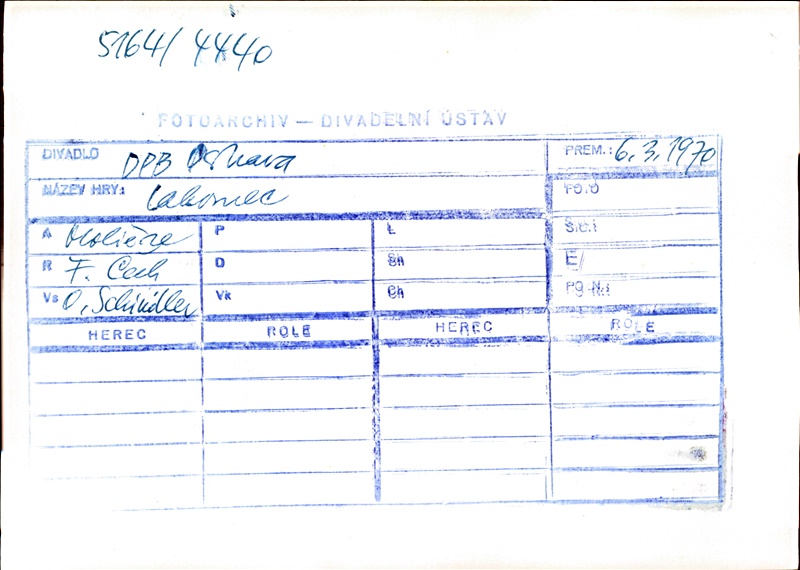 5164/4440
FOTOARCHIV — DIVADELNÍ ÚSTAV
DIVADLO DPB Ostrava PREM.: 6.3.1970
NÁZEV HRY: Lakomec FOTO
A Molière P L Sig.:
R F. Čech D Sh E/
Vs O. Schindler Vk Ch PG N:
HEREC ROLE HEREC ROLE